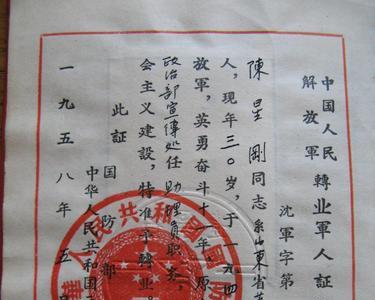 中国人民
解放軍
轉业軍人証
沈軍字第
陳星剛同志系山东省
人，現年三〇岁，于一九四
放軍，英勇奋斗十一年。原
政治部宣傳处任助理員职务
会主义建設，特准予轉业。
此証
国防部
中华人民共和国
一九五八年五